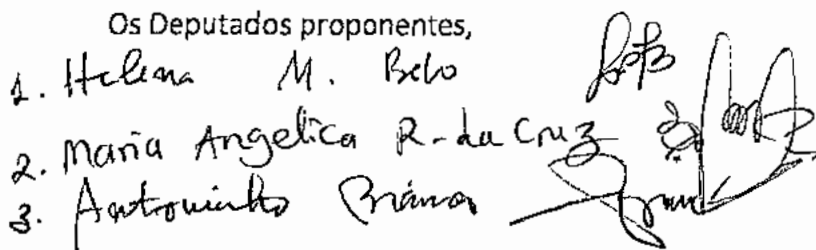 Os Deputados proponentes,
1. Helena M. Belo
2. Maria Angelica R. da Cruz
3. Antoninho Bianco